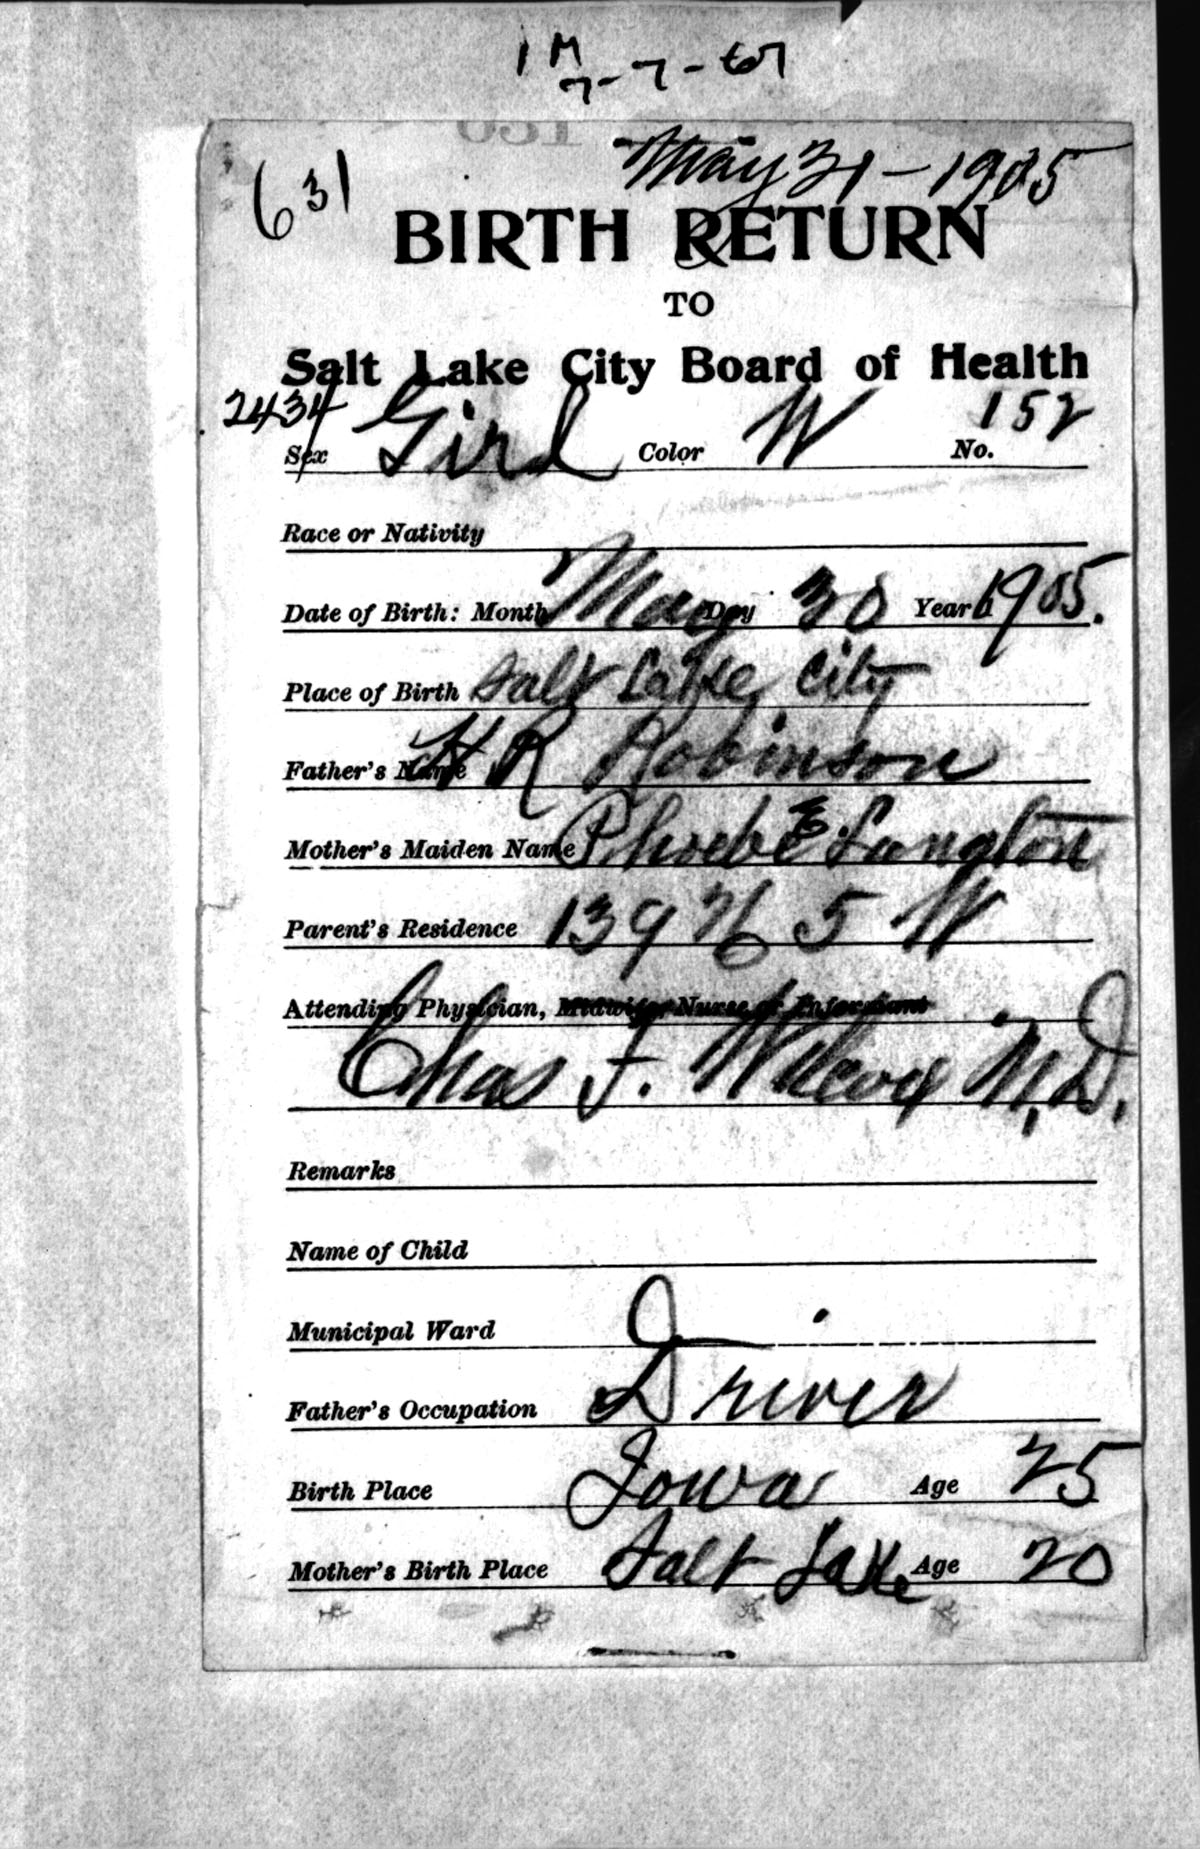 1 M
7-7-67
May 31-1905
631
BIRTH RETURN
TO
Salt Lake City Board of Health
2434 152
Sex Girl Color W No.
Race or Nativity
Date of Birth: Month May Day 30 Year 1905.
Place of Birth Salt Lake City
Father's Name H R Robinson
Mother's Maiden Name Phoebe E. Langton
Parent's Residence 139 N 5 W
Attending Physician, Midwife, Nurse or Informant
Chas F. Wilcox M.D.
Remarks
Name of Child
Municipal Ward
Father's Occupation Driver
Birth Place Iowa Age 25
Mother's Birth Place Salt Lake Age 20